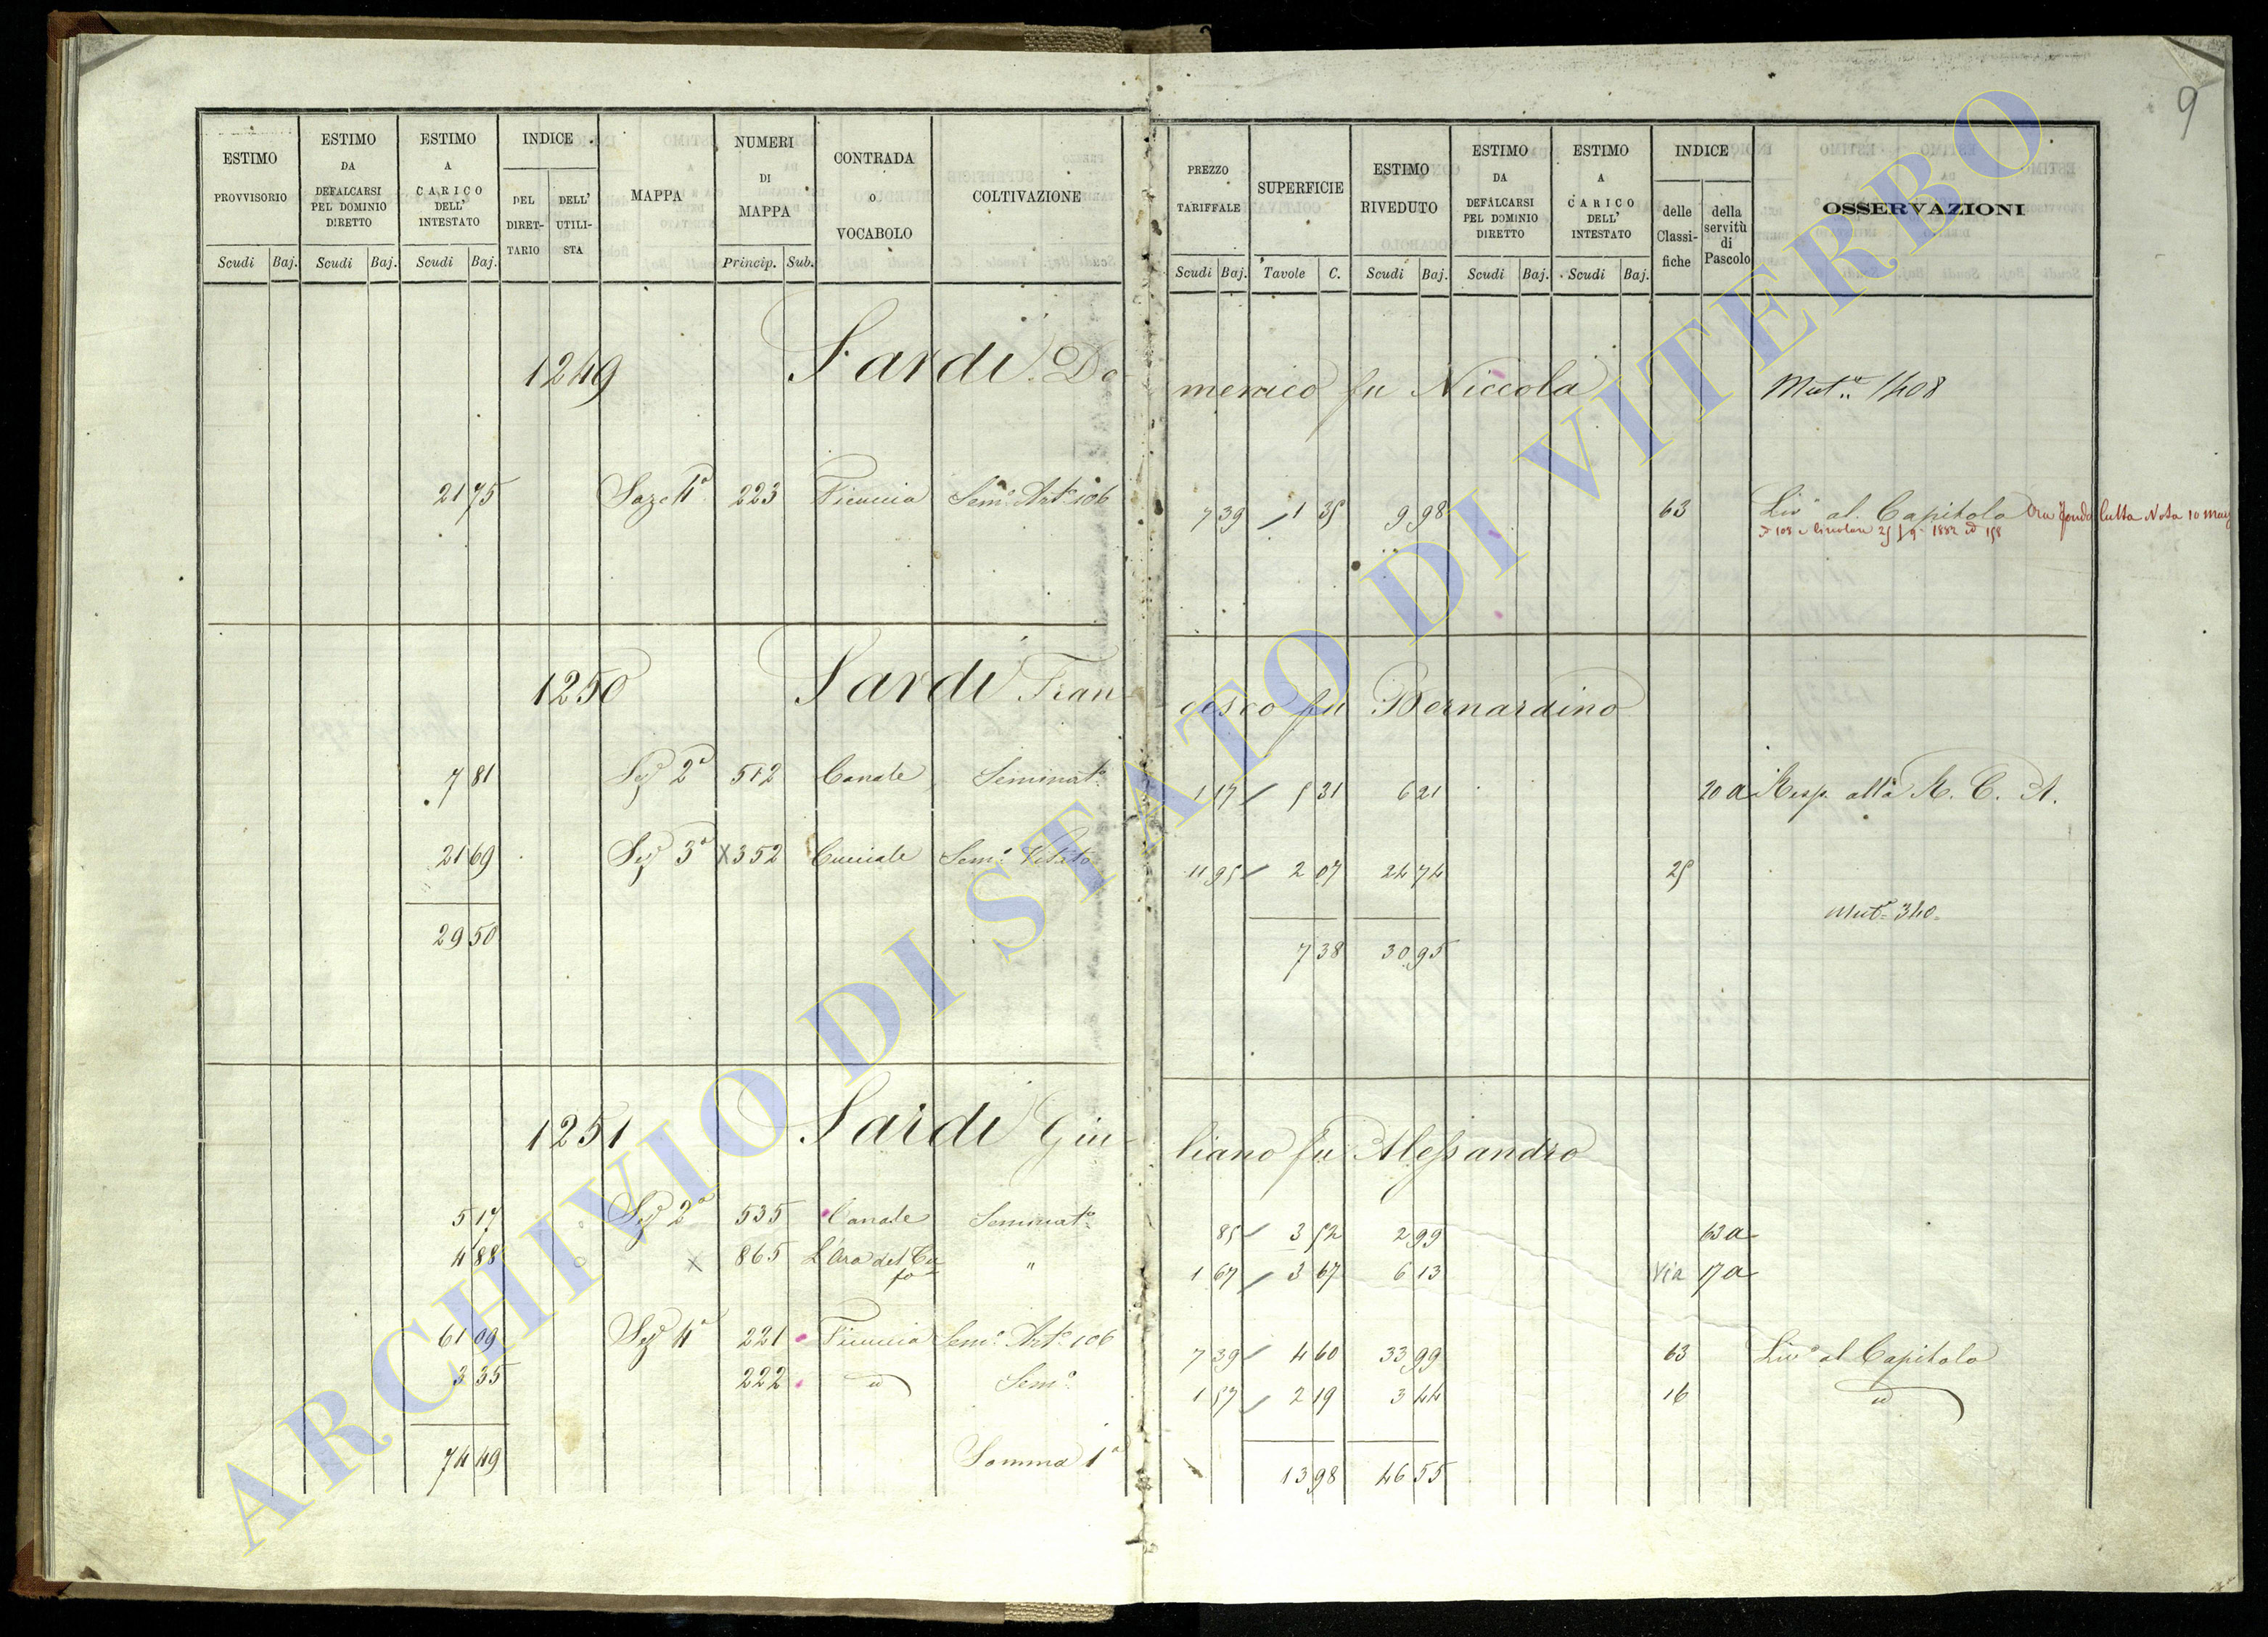 9
ESTIMO PROVVISORIO | ESTIMO DA DEFALCARSI PEL DOMINIO DIRETTO | ESTIMO A CARICO DELL' INTESTATO | INDICE DEL DIRETTARIO DELL' UTILISTA | MAPPA | NUMERI DI MAPPA | CONTRADA O VOCABOLO | COLTIVAZIONE | PREZZO TARIFFALE | SUPERFICIE | ESTIMO RIVEDUTO | ESTIMO DA DEFALCARSI PEL DOMINIO DIRETTO | ESTIMO A CARICO DELL' INTESTATO | INDICE delle Classifiche della servitù di Pascolo | OSSERVAZIONI
Scudi Baj. Scudi Baj. Scudi Baj. Princip. Sub. Scudi Baj. Tavole C. Scudi Baj. Scudi Baj. Scudi Baj.
1249 Sardi Domenico fu Niccola Mut.e 1408
21 75 Seze 4a 223 Ficuccia Sem.o Art.o 106 7 39 1 35 9 98 63 Liv.o al Capitolo
1250 Sardi Francesco fu Bernardino
7 81 Sez 2a 512 Canale Seminat.o 1 17 5 31 6 21 20 a Resp. alla R. C. A.
21 69 Sez 3a X 352 Cucciale Sem.o Vitato 11 95 2 07 24 74 25
Mut.e 340
29 50 7 38 30 95
1251 Sardi Giuliano fu Alessandro
5 17 Sez 2a 535 Canale Seminat.o 85 3 52 2 99 63 a
4 88 X 865 L'Ara del Cu " 1 67 3 67 6 13 Via 17 a
61 09 Sez 4a 221 Ficuccia Sem.o Art.o 106 7 39 4 60 33 99 63 Liv.o al Capitolo
3 35 222 id Sem.o 1 57 2 19 3 44 16 id
74 49 Somma 1a 13 98 46 55
ARCHIVIO DI STATO DI VITERBO